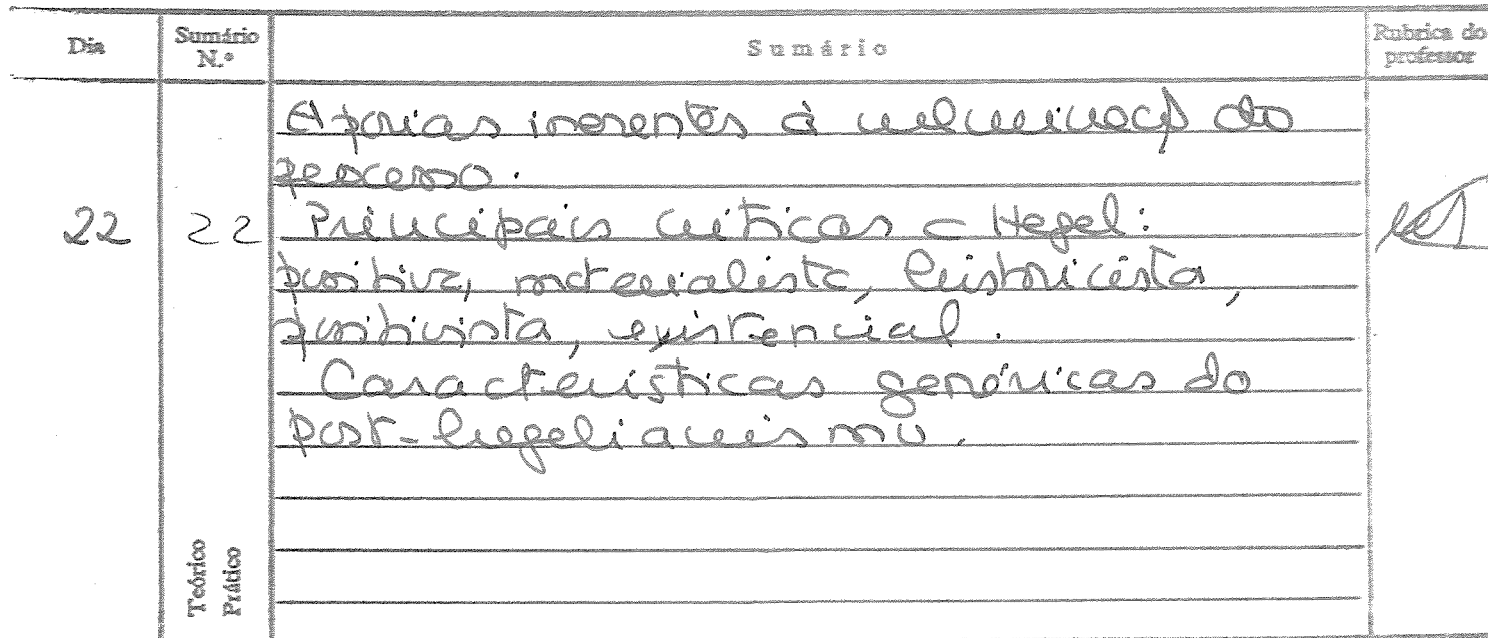 Dia
Sumário N.º
Sumário
Rubrica do professor
Aporias inerentes à culminação do
processo.
22
22
Principais críticas a Hegel:
positiva, materialista, historicista,
positivista, existencial.
Características genéricas do
post-hegelianismo.
Teórico
Prático